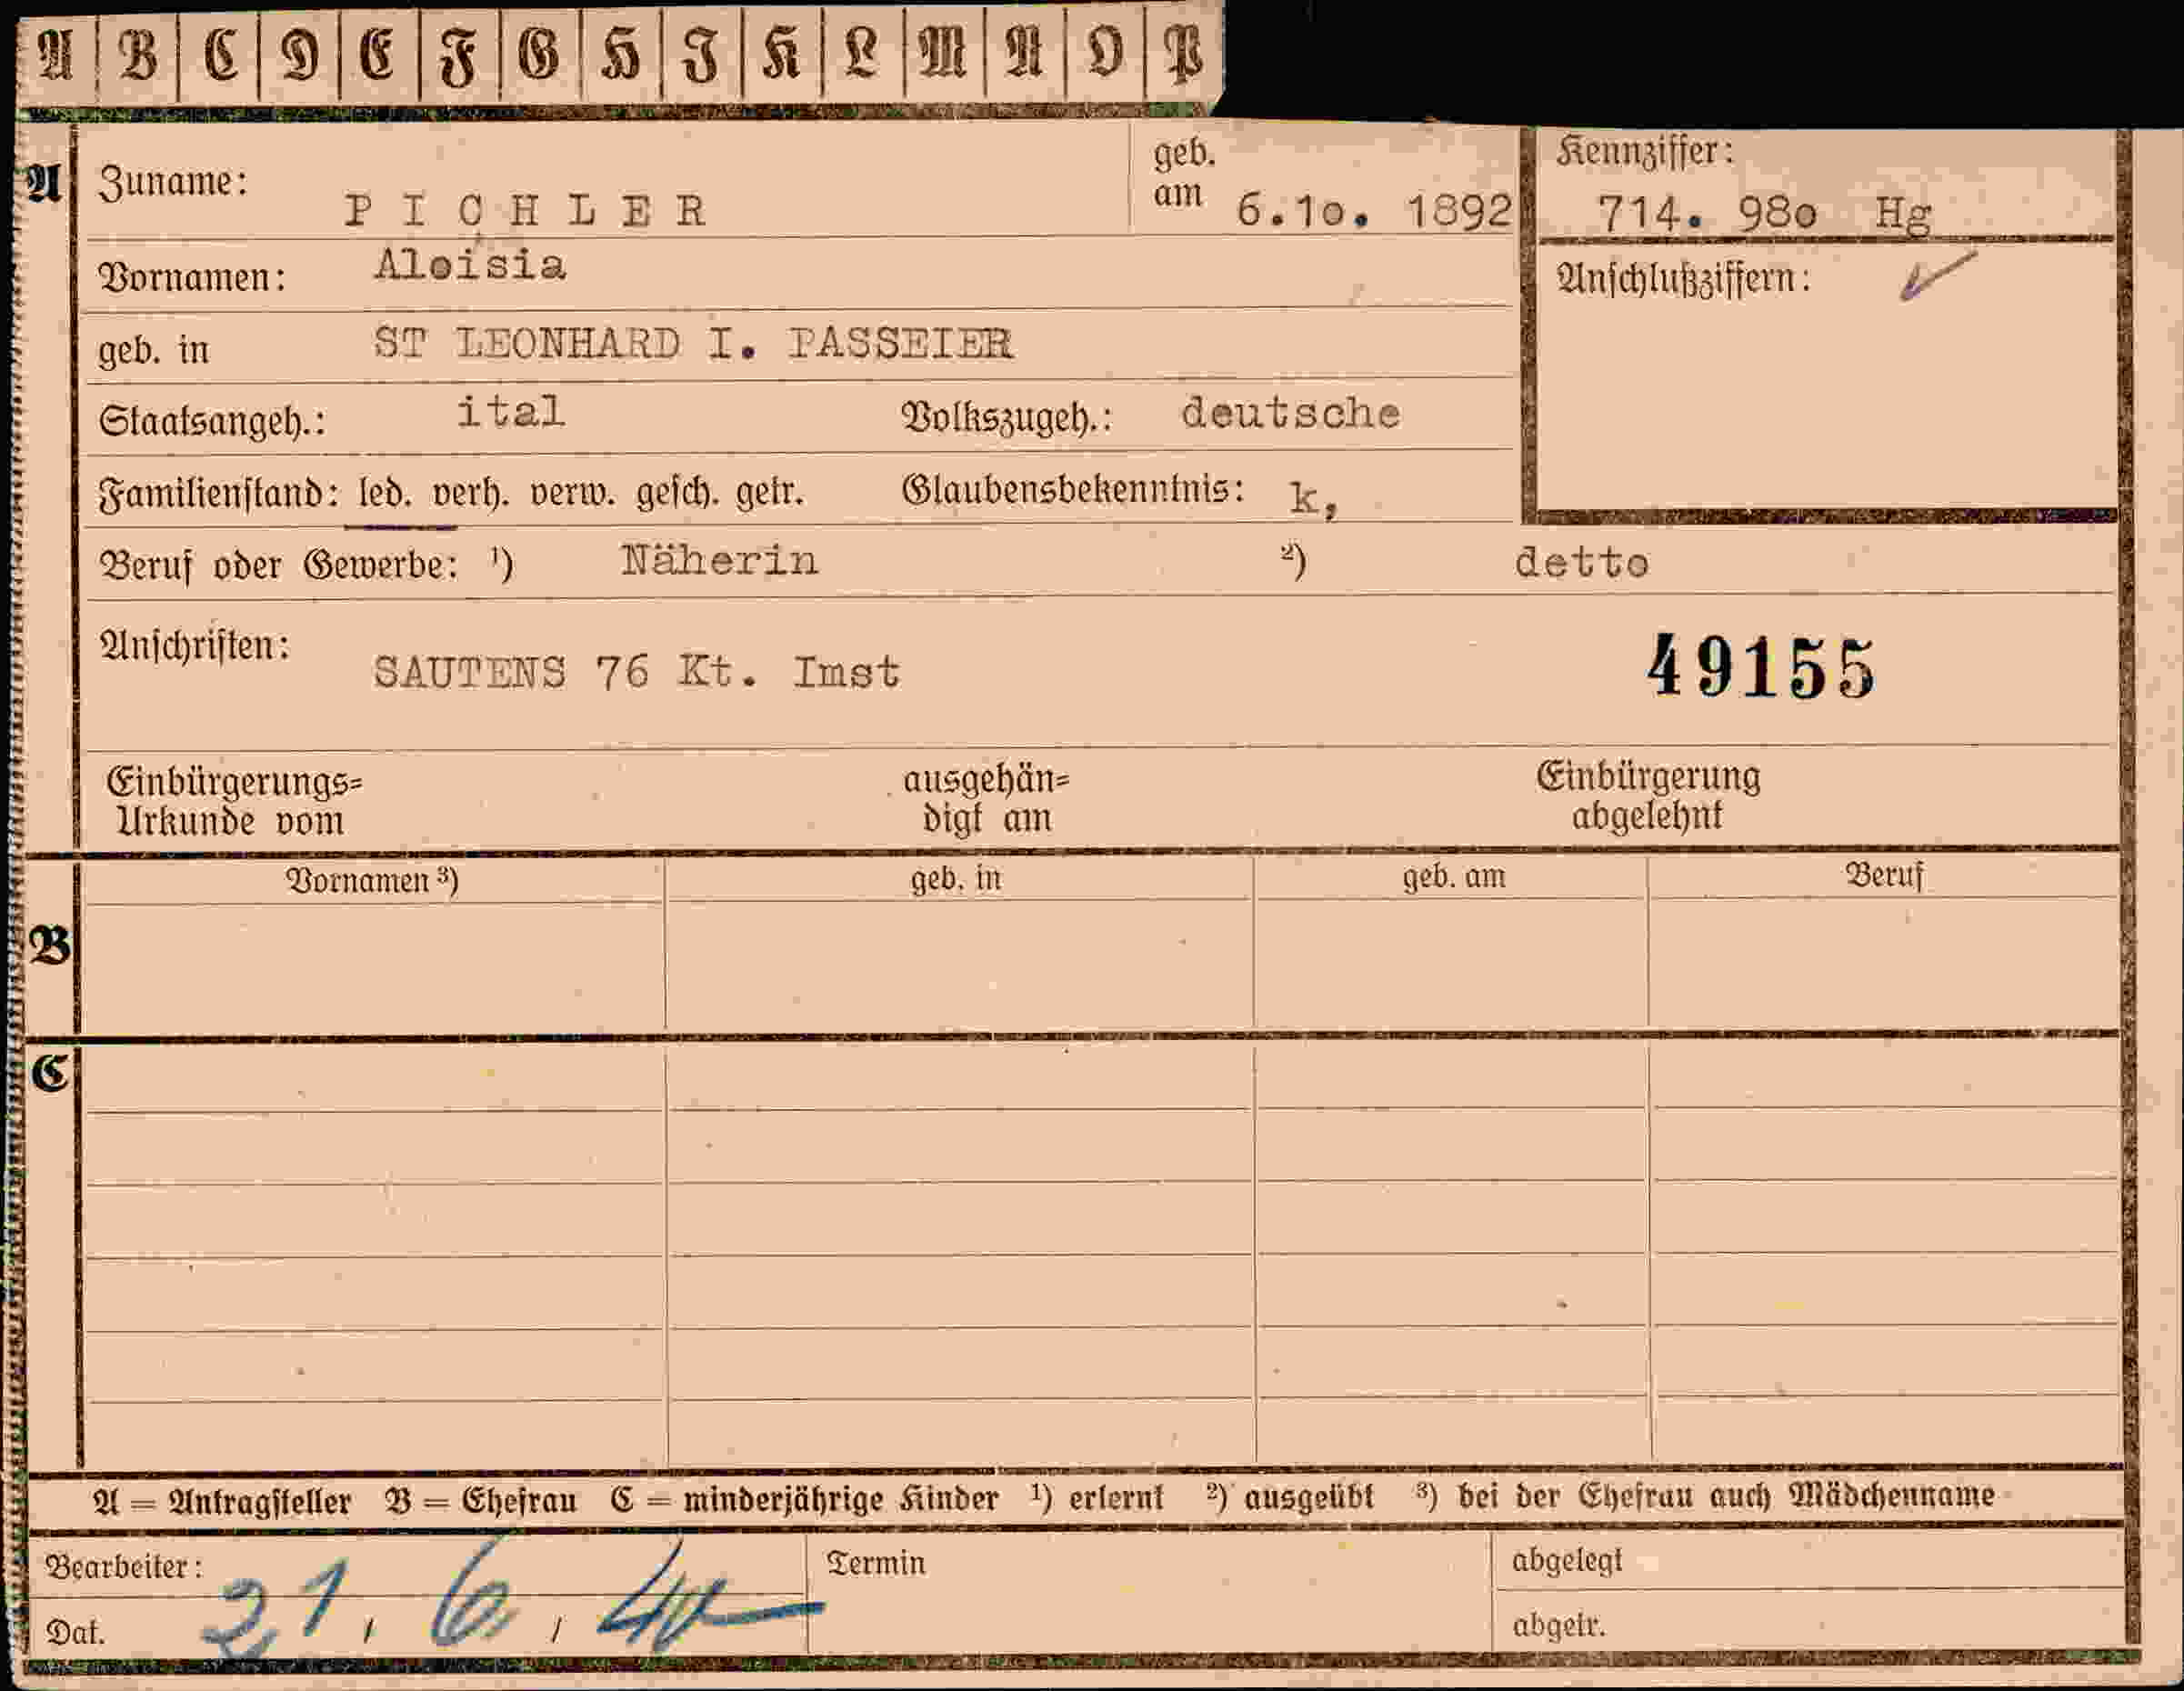 A B C D E F G H I K L M N O P
A Zuname: PICHLER geb. am 6.1o. 1892 Kennziffer: 714. 98o Hg
Vornamen: Aloisia Anschlußziffern:
geb. in ST LEONHARD I. PASSEIER
Staatsangeh.: ital Volkszugeh.: deutsche
Familienstand: led. verh. verw. gesch. getr. Glaubensbekenntnis: k,
Beruf oder Gewerbe: ¹) Näherin ²) detto
Anschriften: SAUTENS 76 Kt. Imst 49155
Einbürgerungs= ausgehän= Einbürgerung
Urkunde vom digt am abgelehnt
Vornamen ³) geb. in geb. am Beruf
B
C
A = Antragsteller B = Ehefrau C = minderjährige Kinder ¹) erlernt ²) ausgeübt ³) bei der Ehefrau auch Mädchenname
Bearbeiter: Termin abgelegt
Dat. 21 / 6 / 40 abgetr.